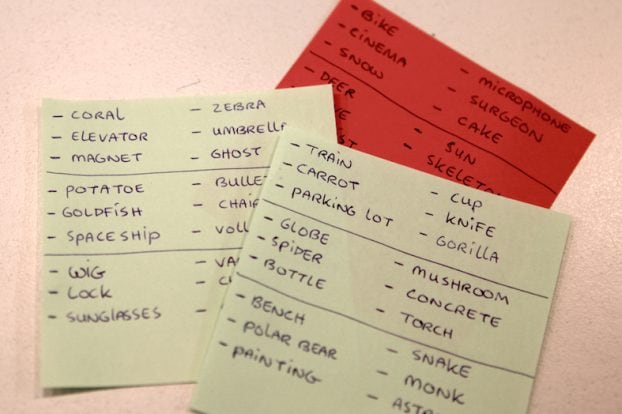 - BIKE
- CINEMA
- SNOW
- MICROPHONE
- SURGEON
- CAKE
- DEER
- SUN
- SKELETON
- CORAL
- ELEVATOR
- MAGNET
- ZEBRA
- UMBRELLA
- GHOST
- POTATOE
- GOLDFISH
- SPACESHIP
- BULLET
- CHAIR
- VOLL
- WIG
- LOCK
- SUNGLASSES
- VA
- C
- TRAIN
- CARROT
- PARKING LOT
- CUP
- KNIFE
- GORILLA
- GLOBE
- SPIDER
- BOTTLE
- MUSHROOM
- CONCRETE
- TORCH
- BENCH
- POLAR BEAR
- PAINTING
- SNAKE
- MONK
- ASTR